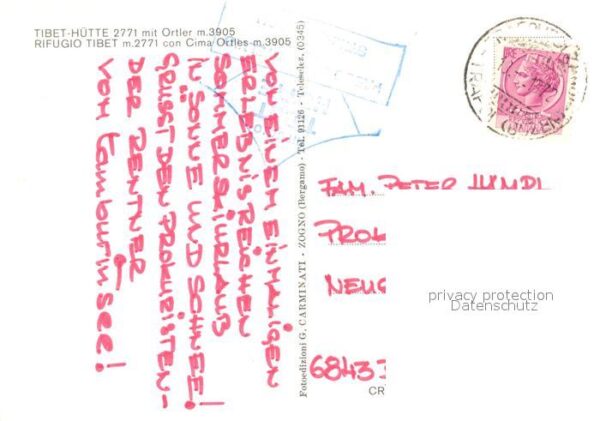 TIBET-HÜTTE 2771 mit Ortler m.3905
RIFUGIO TIBET m.2771 con Cima Ortles m.3905
VON EINEM EINMALIGEN
ERLEBNISREICHEN
SOMMERSKIURLAUB
IN SONNE UND SCHNEE!
GRÜSST DEN PROKURISTEN-
DER RENTNER
VOM
Fotoedizioni G. CARMINATI - ZOGNO (Bergamo) - Tel. 91126 - Teleselez. (0345)
FAM. PETER
PROK
NEUG
6843
CR
privacy protection
Datenschutz